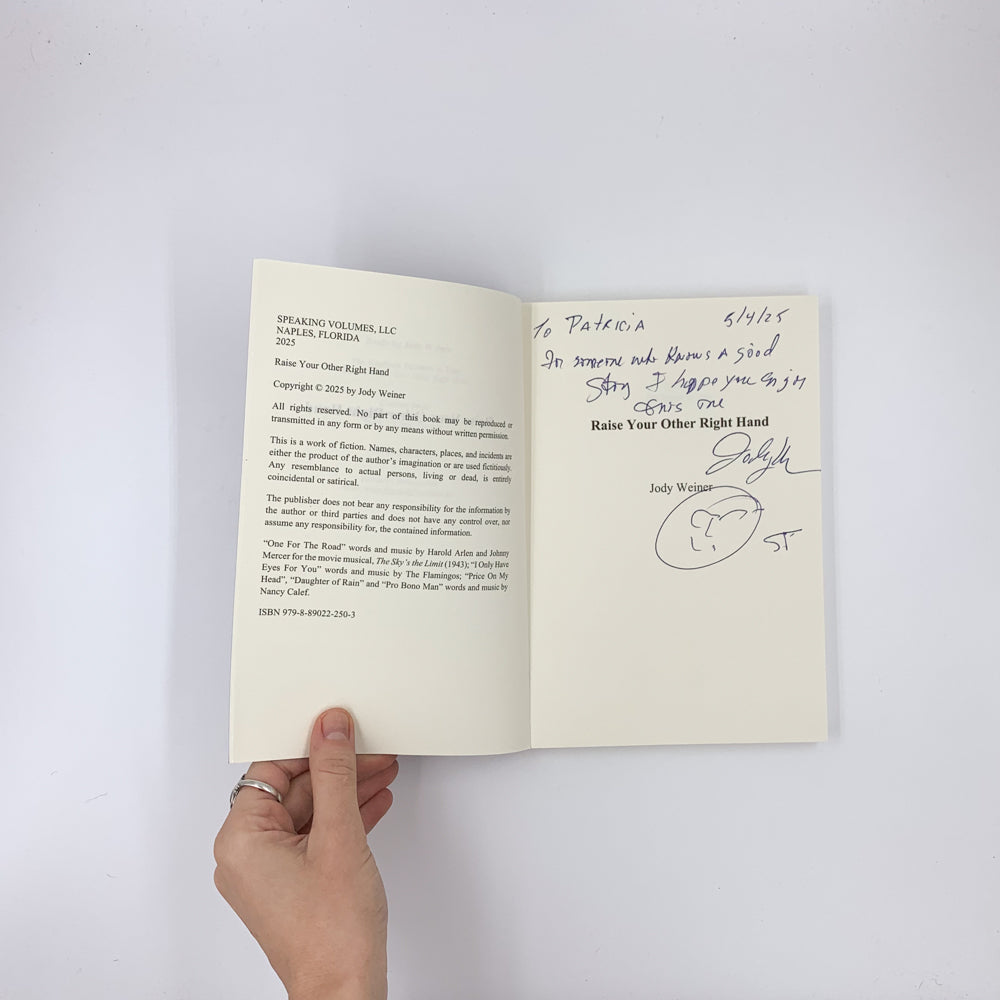 SPEAKING VOLUMES, LLC
NAPLES, FLORIDA
2025
Raise Your Other Right Hand
Copyright © 2025 by Jody Weiner
All rights reserved. No part of this book may be reproduced or
transmitted in any form or by any means without written permission.
This is a work of fiction. Names, characters, places, and incidents are
either the product of the author's imagination or are used fictitiously.
Any resemblance to actual persons, living or dead, is entirely
coincidental or satirical.
The publisher does not bear any responsibility for the information by
the author or third parties and does not have any control over, nor
assume any responsibility for, the contained information.
“One For The Road” words and music by Harold Arlen and Johnny
Mercer for the movie musical, The Sky’s the Limit (1943); “I Only Have
Eyes For You” words and music by The Flamingos; “Price On My
Head”, “Daughter of Rain” and “Pro Bono Man” words and music by
Nancy Calef.
ISBN 979-8-89022-250-3
To PATRICIA 5/4/25
For someone who knows A good
Story I hope you enjoy
this one
Raise Your Other Right Hand
Jody Weiner